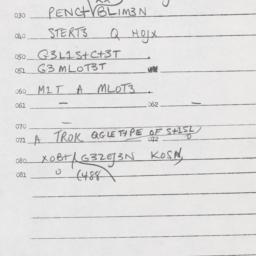 030 PENCT BLIM3N
040 STERTS Q HOJX
050 G3L1St+C+3T
051 G3MLOT3T
060 M1T A MLOT3
061 — 062 —
070 —
071 A TROK QGLETYPE OF St1SL
080 XOBT G3ZEJ3N KOSM
081 (488